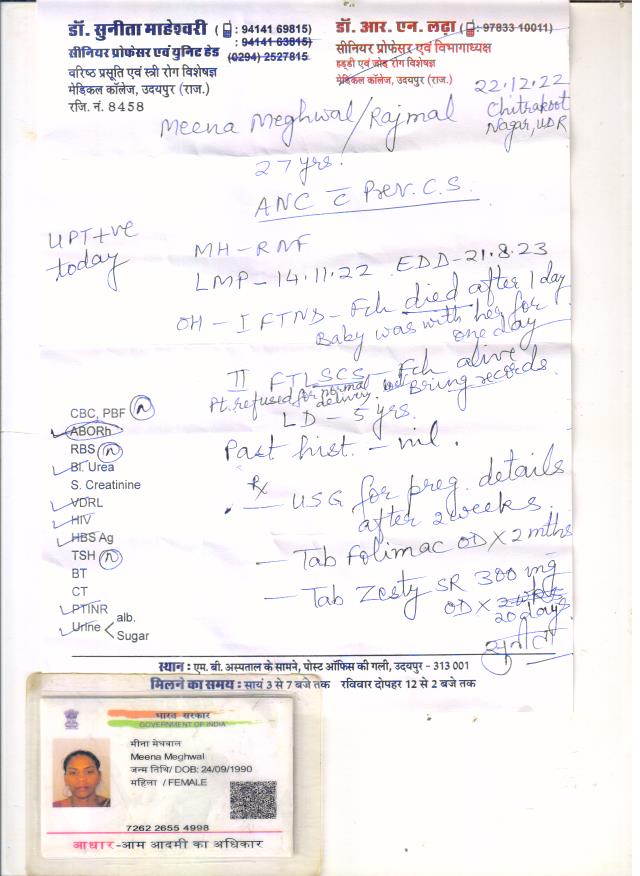 डॉ. सुनीता माहेश्वरी ( : 94141 69815)
: 94141 63815)
सीनियर प्रोफेसर एवं युनिट हेड (0294) 2527815
वरिष्ठ प्रसूति एवं स्त्री रोग विशेषज्ञ
मेडिकल कॉलेज, उदयपुर (राज.)
रजि. नं. 8458
डॉ. आर. एन. लढ़ा ( : 97833 10011)
सीनियर प्रोफेसर एवं विभागाध्यक्ष
हड्डी एवं जोड़ रोग विशेषज्ञ
मेडिकल कॉलेज, उदयपुर (राज.)
22.12.22
Chitrakoot
Nagar, UDR
Meena Meghwal/Rajmal
27 yrs.
ANC c̄ Prev. C.S.
UPT+ve
today
MH-RNF
LMP-14.11.22 EDD-21.8.23
OH - I FTND - Fch died after 1 day
Baby was with her for
one day
II FTLSCS - Fch alive
Pt. refused for normal
delivery
Bring records.
LD - 5 yrs.
Past hist. - nil.
CBC, PBF (n)
ABORh
RBS (n)
Bl. Urea
S. Creatinine
VDRL
HIV
HBS Ag
TSH (n)
BT
CT
PTINR
Urine < alb.
Sugar
Rx
- USG for preg. details
after 2 weeks.
- Tab Folimac OD X 2 mths
- Tab Zesty SR 300 mg
OD X 2 wks
20 days
सुनीता
स्थान : एम. बी. अस्पताल के सामने, पोस्ट ऑफिस की गली, उदयपुर - 313 001
मिलने का समय : सायं 3 से 7 बजे तक रविवार दोपहर 12 से 2 बजे तक
भारत सरकार
GOVERNMENT OF INDIA
मीना मेघवाल
Meena Meghwal
जन्म तिथि/ DOB: 24/09/1990
महिला / FEMALE
7262 2655 4998
आधार-आम आदमी का अधिकार